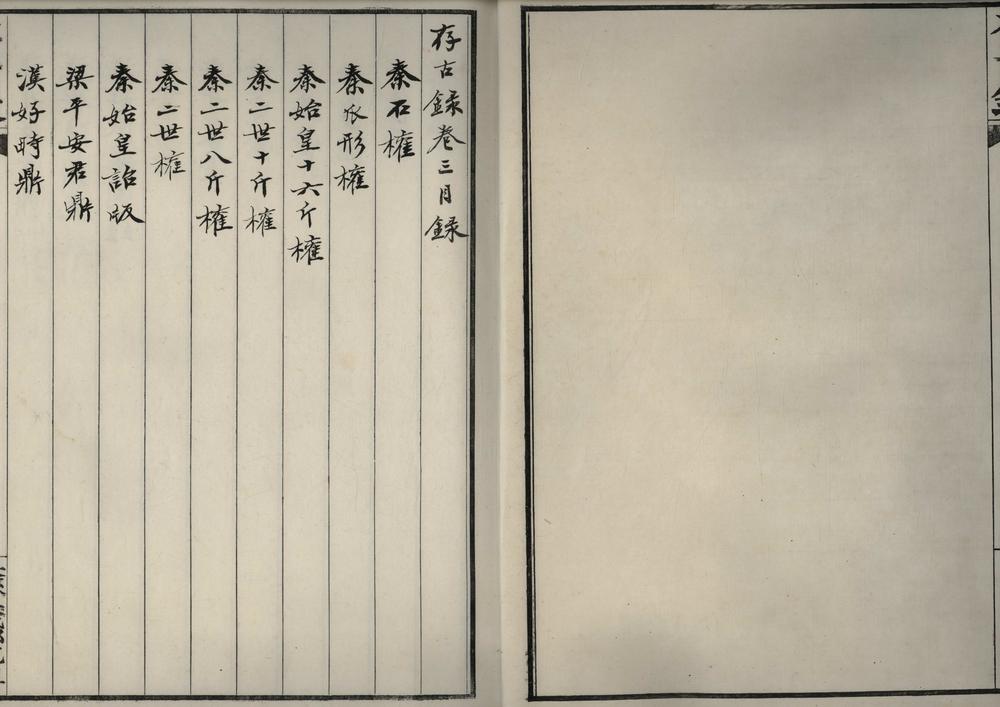 存古録卷三目録
秦石權
秦瓜形權
秦始皇十六斤權
秦二世十斤權
秦二世八斤權
秦二世權
秦始皇詔版
梁平安君鼎
漢好時鼎